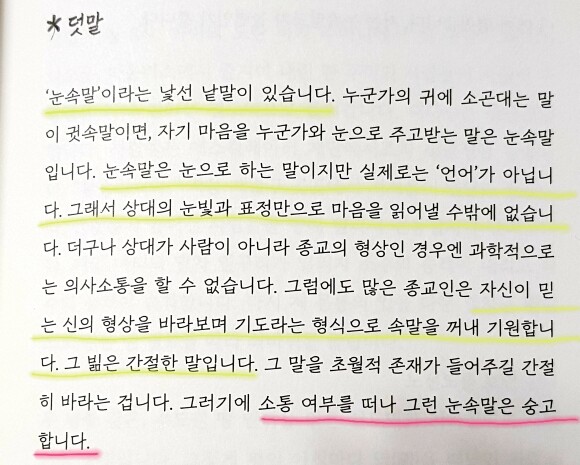 * 덧말
‘눈속말’이라는 낯선 낱말이 있습니다. 누군가의 귀에 소곤대는 말
이 귓속말이면, 자기 마음을 누군가와 눈으로 주고받는 말은 눈속말
입니다. 눈속말은 눈으로 하는 말이지만 실제로는 ‘언어’가 아닙니
다. 그래서 상대의 눈빛과 표정만으로 마음을 읽어낼 수밖에 없습니
다. 더구나 상대가 사람이 아니라 종교의 형상인 경우엔 과학적으로
는 의사소통을 할 수 없습니다. 그럼에도 많은 종교인은 자신이 믿
는 신의 형상을 바라보며 기도라는 형식으로 속말을 꺼내 기원합니
다. 그 빎은 간절한 말입니다. 그 말을 초월적 존재가 들어주길 간절
히 바라는 겁니다. 그러기에 소통 여부를 떠나 그런 눈속말은 숭고
합니다.